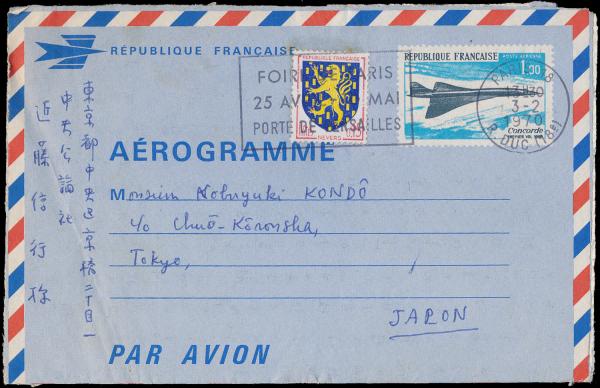 RÉPUBLIQUE FRANÇAISE
FOIRE PARIS
25 AV MAI
PORTE DE SAILLES
RÉPUBLIQUE FRANÇAISE
NEVERS
RÉPUBLIQUE FRANÇAISE POSTE AÉRIENNE
1,00
Concorde
PREMIER VOL 1969
PARIS 18
13H30
3-2
1970
R. DUC (18e)
AÉROGRAMME
Monsieur Nobuyuki KONDÔ
c/o Chuō-Kōronsha,
Tokyo,
JAPON
PAR AVION
東京都中央区京橋二丁目一
中央公論社
近藤信行様